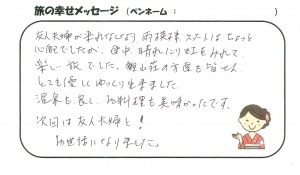 旅の幸せメッセージ（ペンネーム： ）
友人夫婦が来れなくなり、雨模様、スタートはちょっと
心配でしたが、途中、晴れたり虹をみれて、
楽しい旅でした。観山荘の方達も皆さん
とても優しくゆっくり出来ました。
温泉も良く、お料理も美味かったです。
次回は友人夫婦と！
お世話になりました。